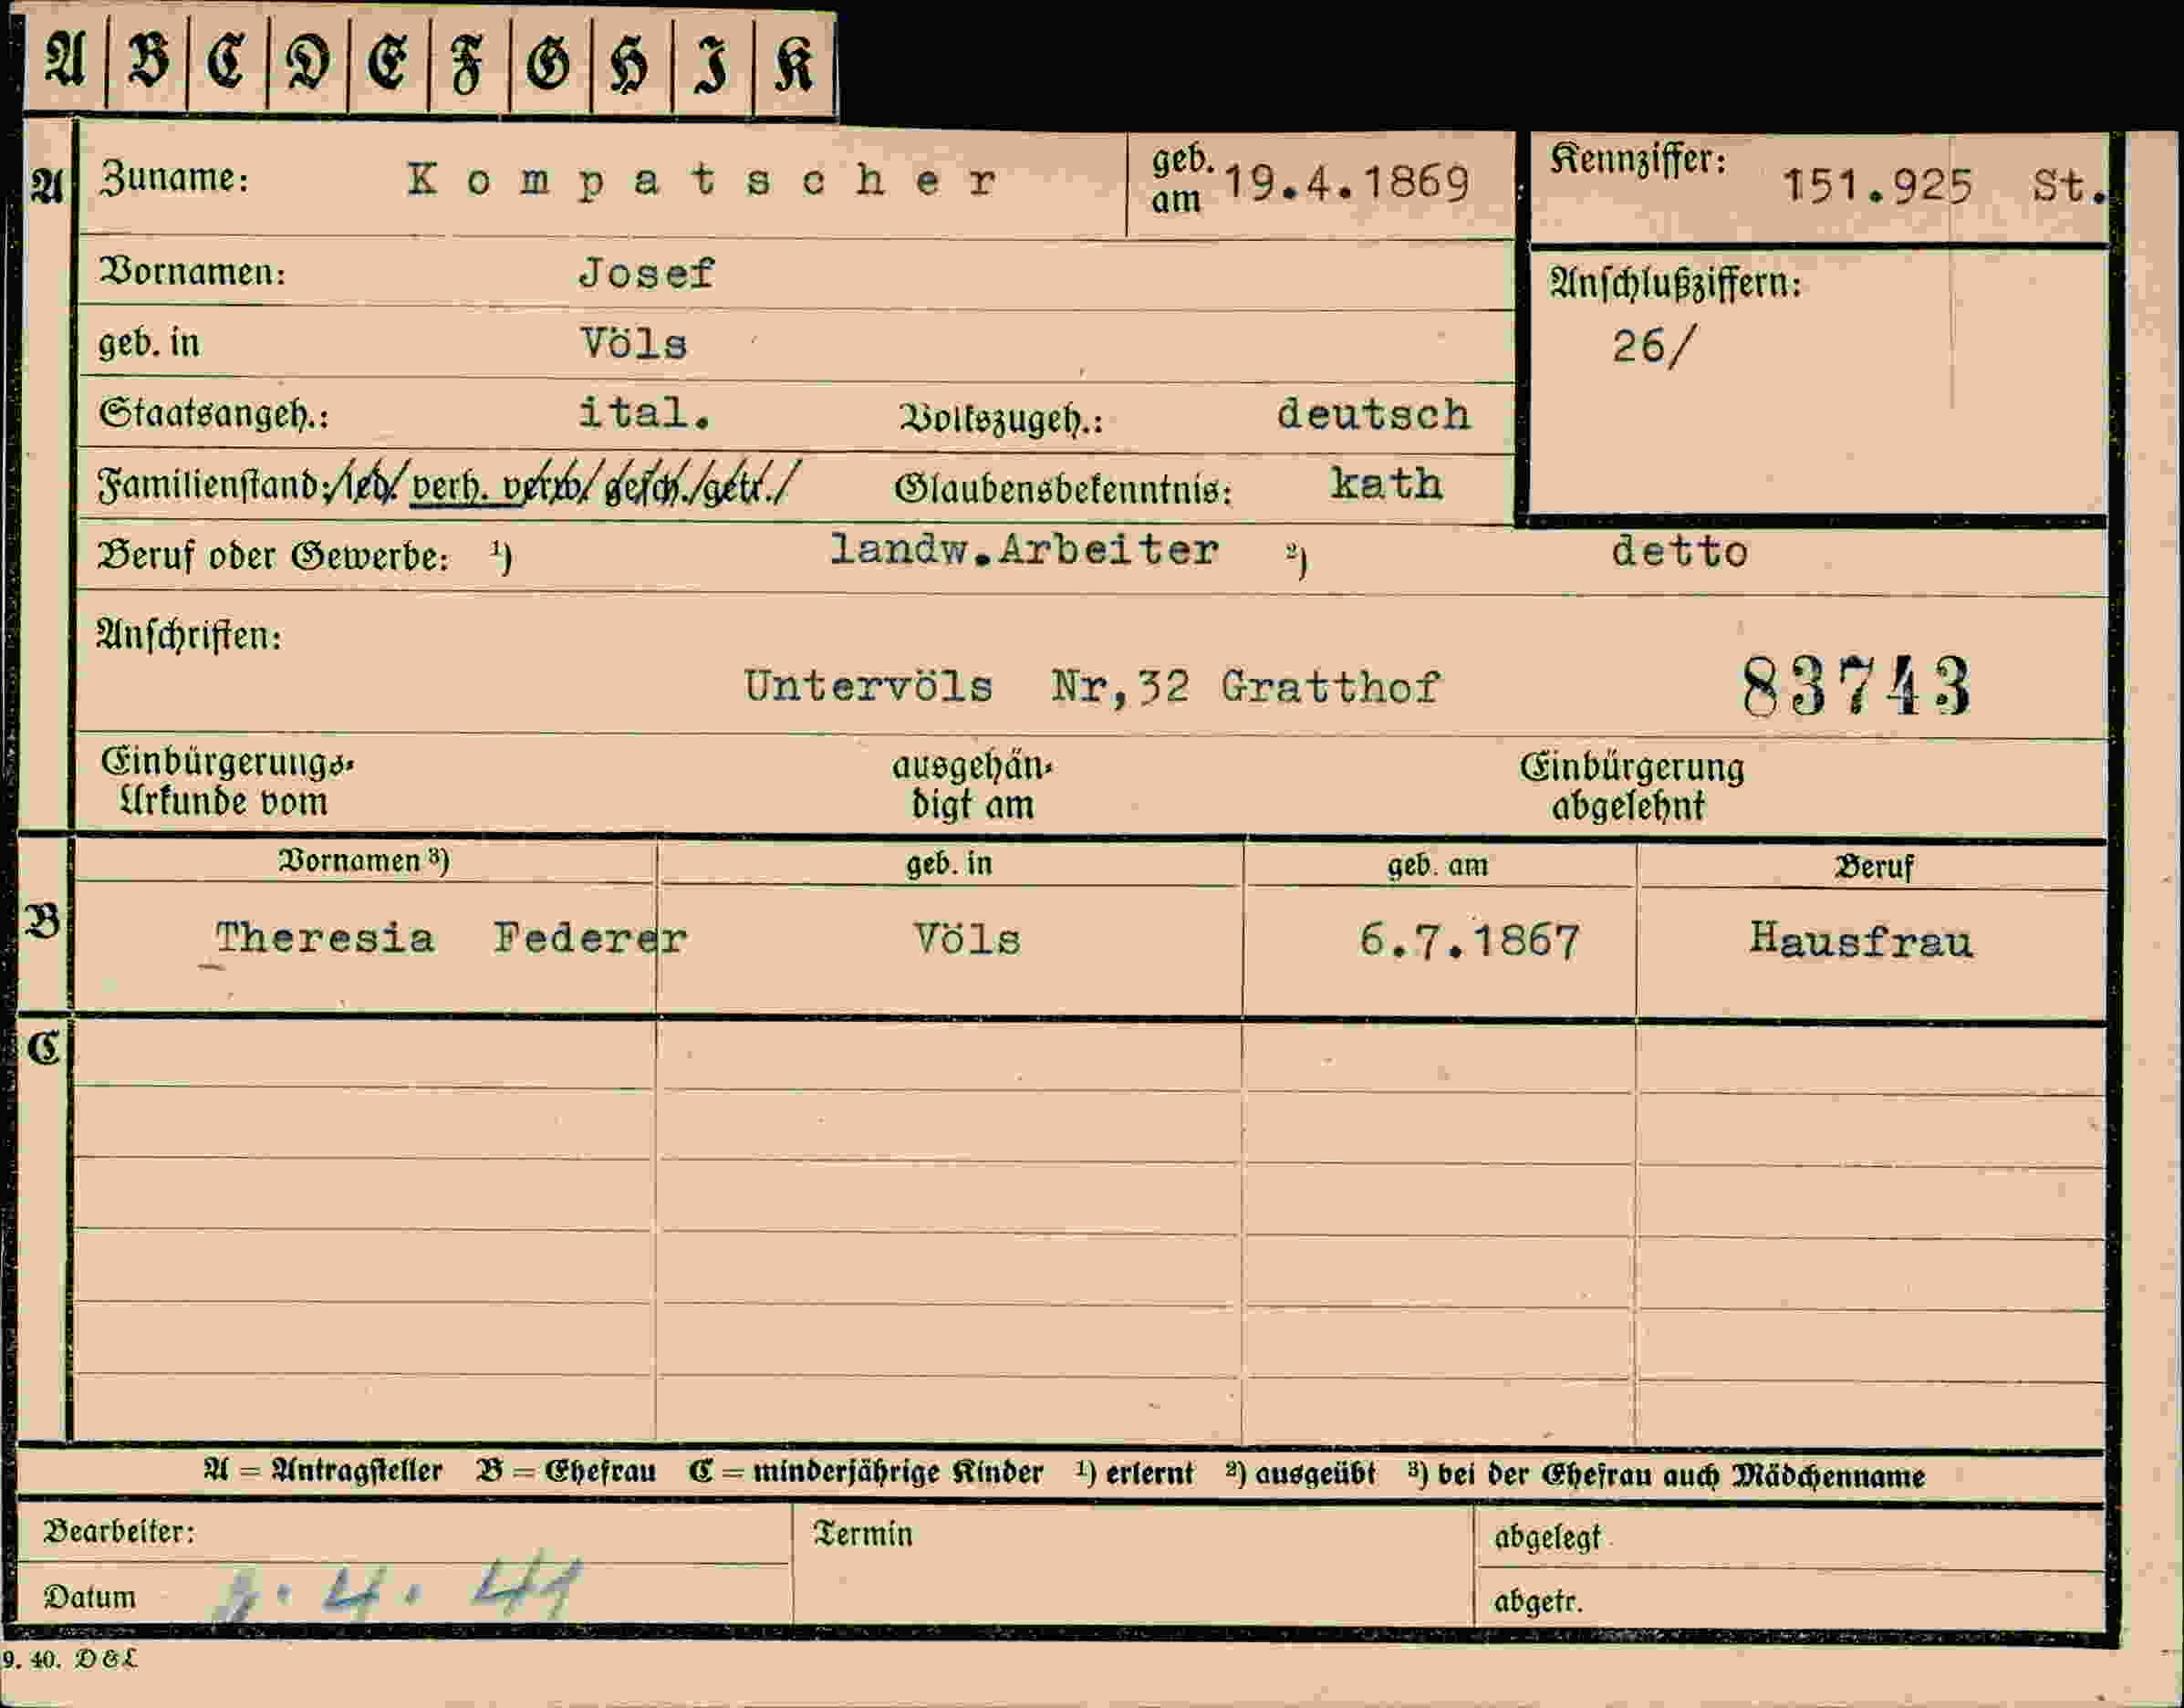 A B C D E F G H I K
A Zuname: Kompatscher geb. am 19.4.1869 Kennziffer: 151.925 St.
Vornamen: Josef Anschlußziffern:
geb. in Völs 26/
Staatsangeh.: ital. Volkszugeh.: deutsch
Familienstand: led. verh. verw. gesch. getr. Glaubensbekenntnis: kath
Beruf oder Gewerbe: ¹) landw.Arbeiter ²) detto
Anschriften:
Untervöls Nr,32 Gratthof 83743
Einbürgerungs- ausgehän- Einbürgerung
Urkunde vom digt am abgelehnt
Vornamen ³) geb. in geb. am Beruf
B Theresia Federer Völs 6.7.1867 Hausfrau
C
A = Antragsteller B = Ehefrau C = minderjährige Kinder ¹) erlernt ²) ausgeübt ³) bei der Ehefrau auch Mädchenname
Bearbeiter: Termin abgelegt
Datum 4. 41 abgetr.
9. 40. D&L